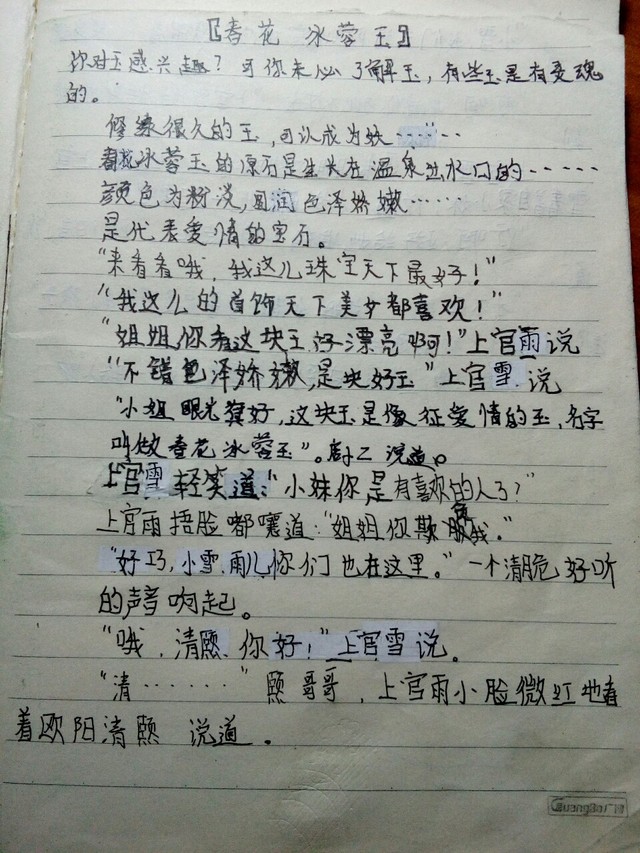 【春花 冰蓉玉】
你对玉感兴趣？可你未必了解玉，有些玉是有灵魂
的。
修缘很久的玉，可以成为妖……
春花冰蓉玉的原石是生长在温泉出水口的……
颜色为粉淡，圆润色泽娇嫩……
是代表爱情的宝石。
"来看看哦，我这儿珠宝天下最好！"
"我这儿的首饰天下美女都喜欢！"
"姐姐，你看这块玉好漂亮啊！"上官雨说
"不错色泽娇嫩，是块好玉"上官雪说
"小姐眼光真好，这块玉是像征爱情的玉，名字
叫做春花冰蓉玉"。店小二说道。
上官雪轻笑道："小妹你是有喜欢的人了？"
上官雨捂脸嘟嚷道："姐姐你欺负我。"
"好巧，小雪、雨儿你们也在这里。"一个清脆好听
的声音响起。
"哦，清颐、你好！"上官雪说。
"清……"颐哥哥，上官雨小脸微红地看
着欧阳清颐 说道。
GuangBo广博